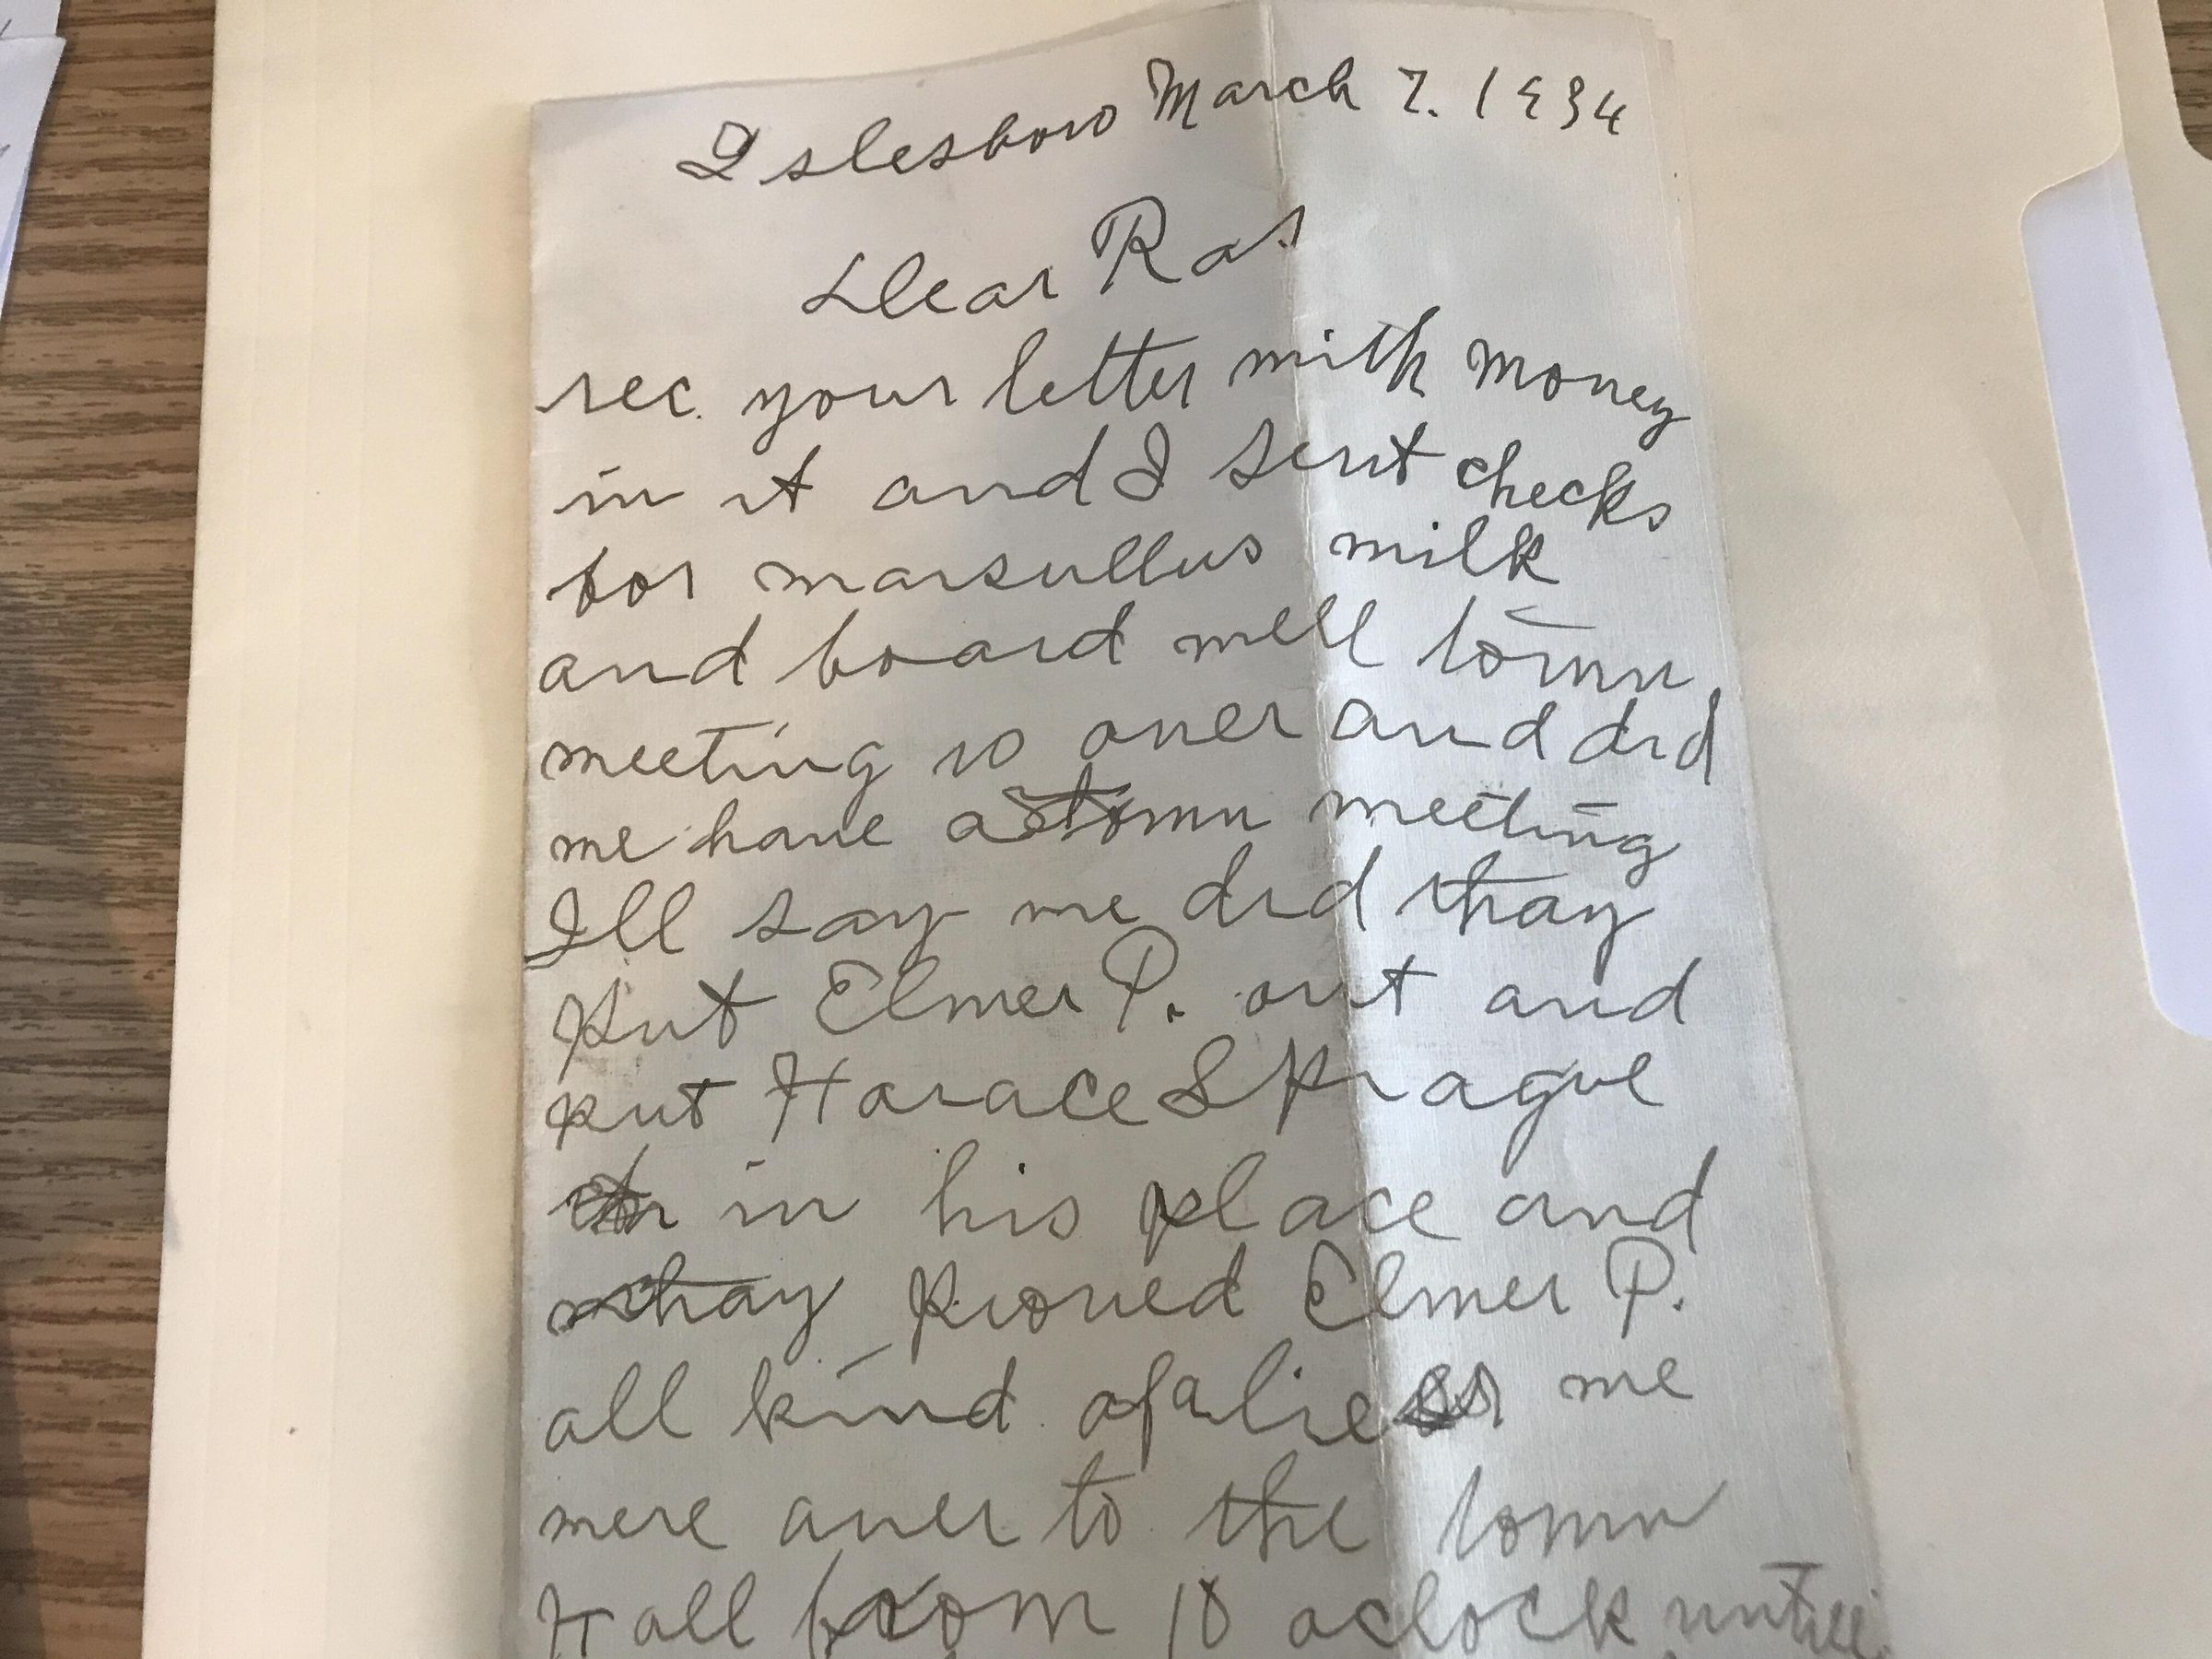 Islesboro March 7. 1934
Dear Ras
rec. your letter with money
in it and I sent checks
for marsullus milk
and board well town
meeting is over and did
we have a town meeting
Ill say we did thay
put Elmer P. out and
put Horace Sprague
in his place and
thay proved Elmer P.
all kind of a lie we
were over to the town
Hall from 10 oclock untill